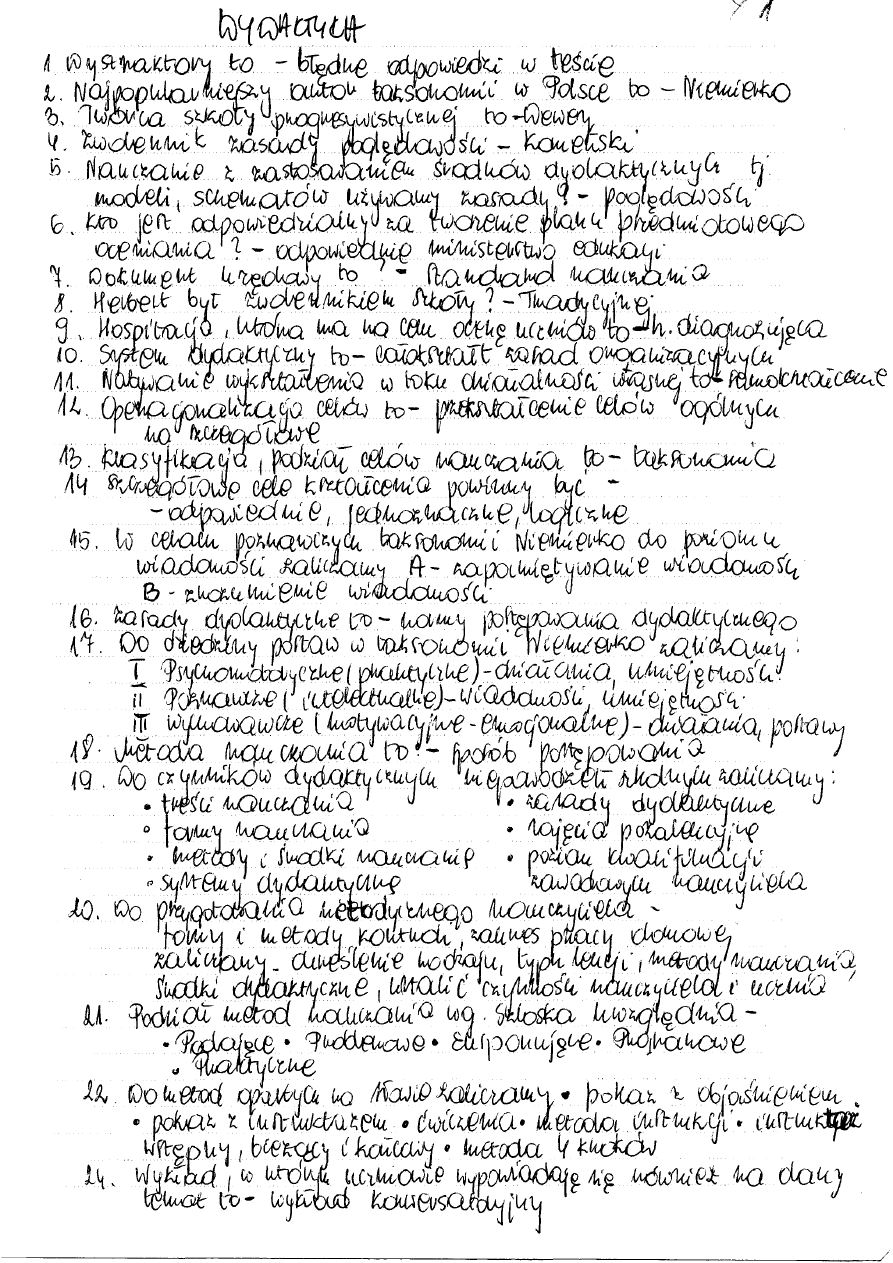 DYDAKTYKA
1
1 Dystraktory to - błędne odpowiedzi w teście
2. Najpopularniejszy autor taksonomii w Polsce to - Niemierko
3. Twórca szkoły progresywistycznej to - Dewey
4. Zwolennik zasady poglądowości - Komeński
5. Nauczanie z zastosowaniem środków dydaktycznych tj
modeli, schematów używamy zasady? - poglądowości
6. Kto jest odpowiedzialny za tworzenie planu przedmiotowego
oceniania? - odpowiednie ministerstwo edukacji
7. Dokument urzędowy to ? - Standard nauczania
8. Herbert był zwolennikiem szkoły? - Tradycyjnej
9. Hospitacja, która ma na celu ocenę uczniów to - h. diagnozująca
10. System dydaktyczny to - całokształt zasad organizacyjnych
11. Nabywanie wykształcenia w toku działalności własnej to - samokształcenie
12. Operacjonalizacja celów to - przekształcenie celów ogólnych
na szczegółowe
13. Klasyfikacja, podział celów nauczania to - taksonomia
14 Szczegółowe cele kształcenia powinny być -
- odpowiednie, jednoznaczne, logiczne
15. W celach poznawczych taksonomii Niemierko do poziomu
wiadomości zaliczamy A - zapamiętywanie wiadomości
B - zrozumienie wiadomości
16. Zasady dydaktyczne to - normy postępowania dydaktycznego
17. Do dziedziny postaw w taksonomii Niemierko zaliczamy:
I Psychomotoryczne (praktyczne) - działania, umiejętności
II Poznawcze (intelektualne) - wiadomości, umiejętności
III wychowawcze (motywacyjne - emocjonalne) - działania, postawy
18. Metoda nauczania to - sposób postępowania
19. Do czynników dydaktycznych niepowodzeń szkolnych zaliczamy:
• treści nauczania • zasady dydaktyczne
• formy nauczania • zajęcia pozalekcyjne
• metody i środki nauczanie • poziom kwalifikacji
• systemy dydaktyczne zawodowych nauczyciela
20. Do przygotowania metodycznego nauczyciela -
formy i metody kontroli, zakres pracy domowej
zaliczamy - określenie rodzaju, typu lekcji, metody nauczania,
środki dydaktyczne, ustalić czynności nauczyciela i ucznia
21. Podział metod nauczania wg. Szloska uwzględnia -
• Podające • Problemowe • Eksponujące • Programowe
• Praktyczne
22. Do metod opartych na słowie zaliczamy • pokaz z objaśnieniem
• pokaz z instruktażem • ćwiczenia • metoda instrukcji • instruktaż
wstępny, bieżący i końcowy • metoda 4 kroków
24. Wykład, w którym uczniowie wypowiadają się również na dany
temat to - wykład konwersatoryjny